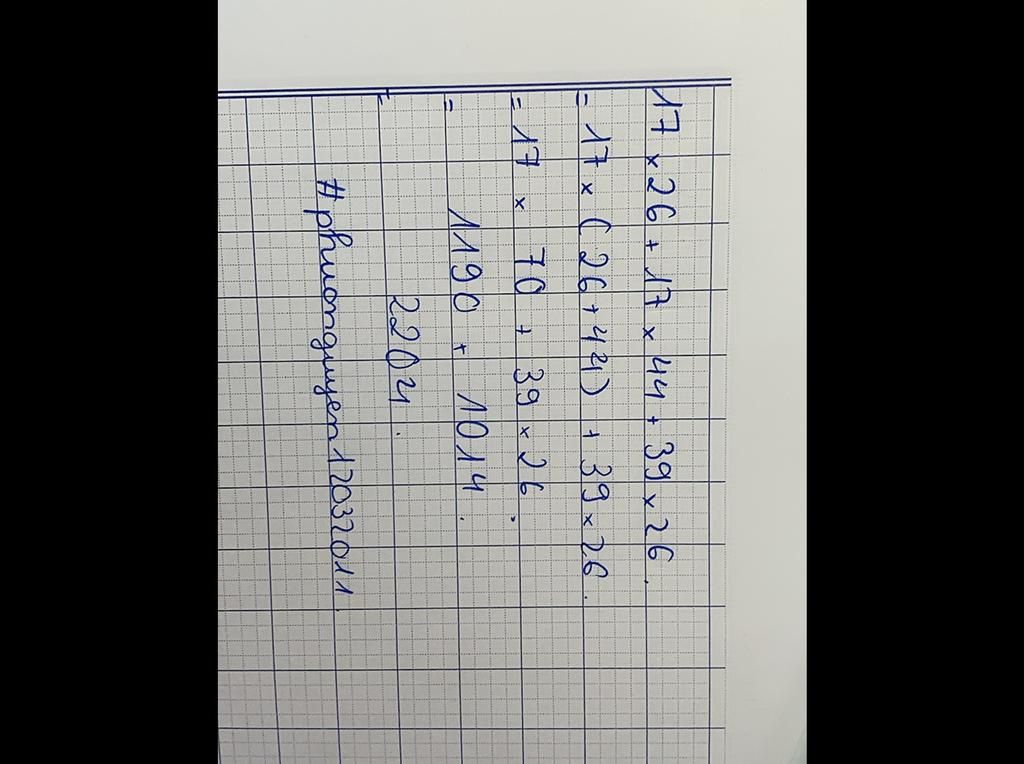 17 × 26 + 17 × 44 + 39 × 26.
= 17 × (26 + 44) + 39 × 26.
= 17 × 70 + 39 × 26.
= 1190 + 1014.
= 2204.
#phuonguyen12032011.